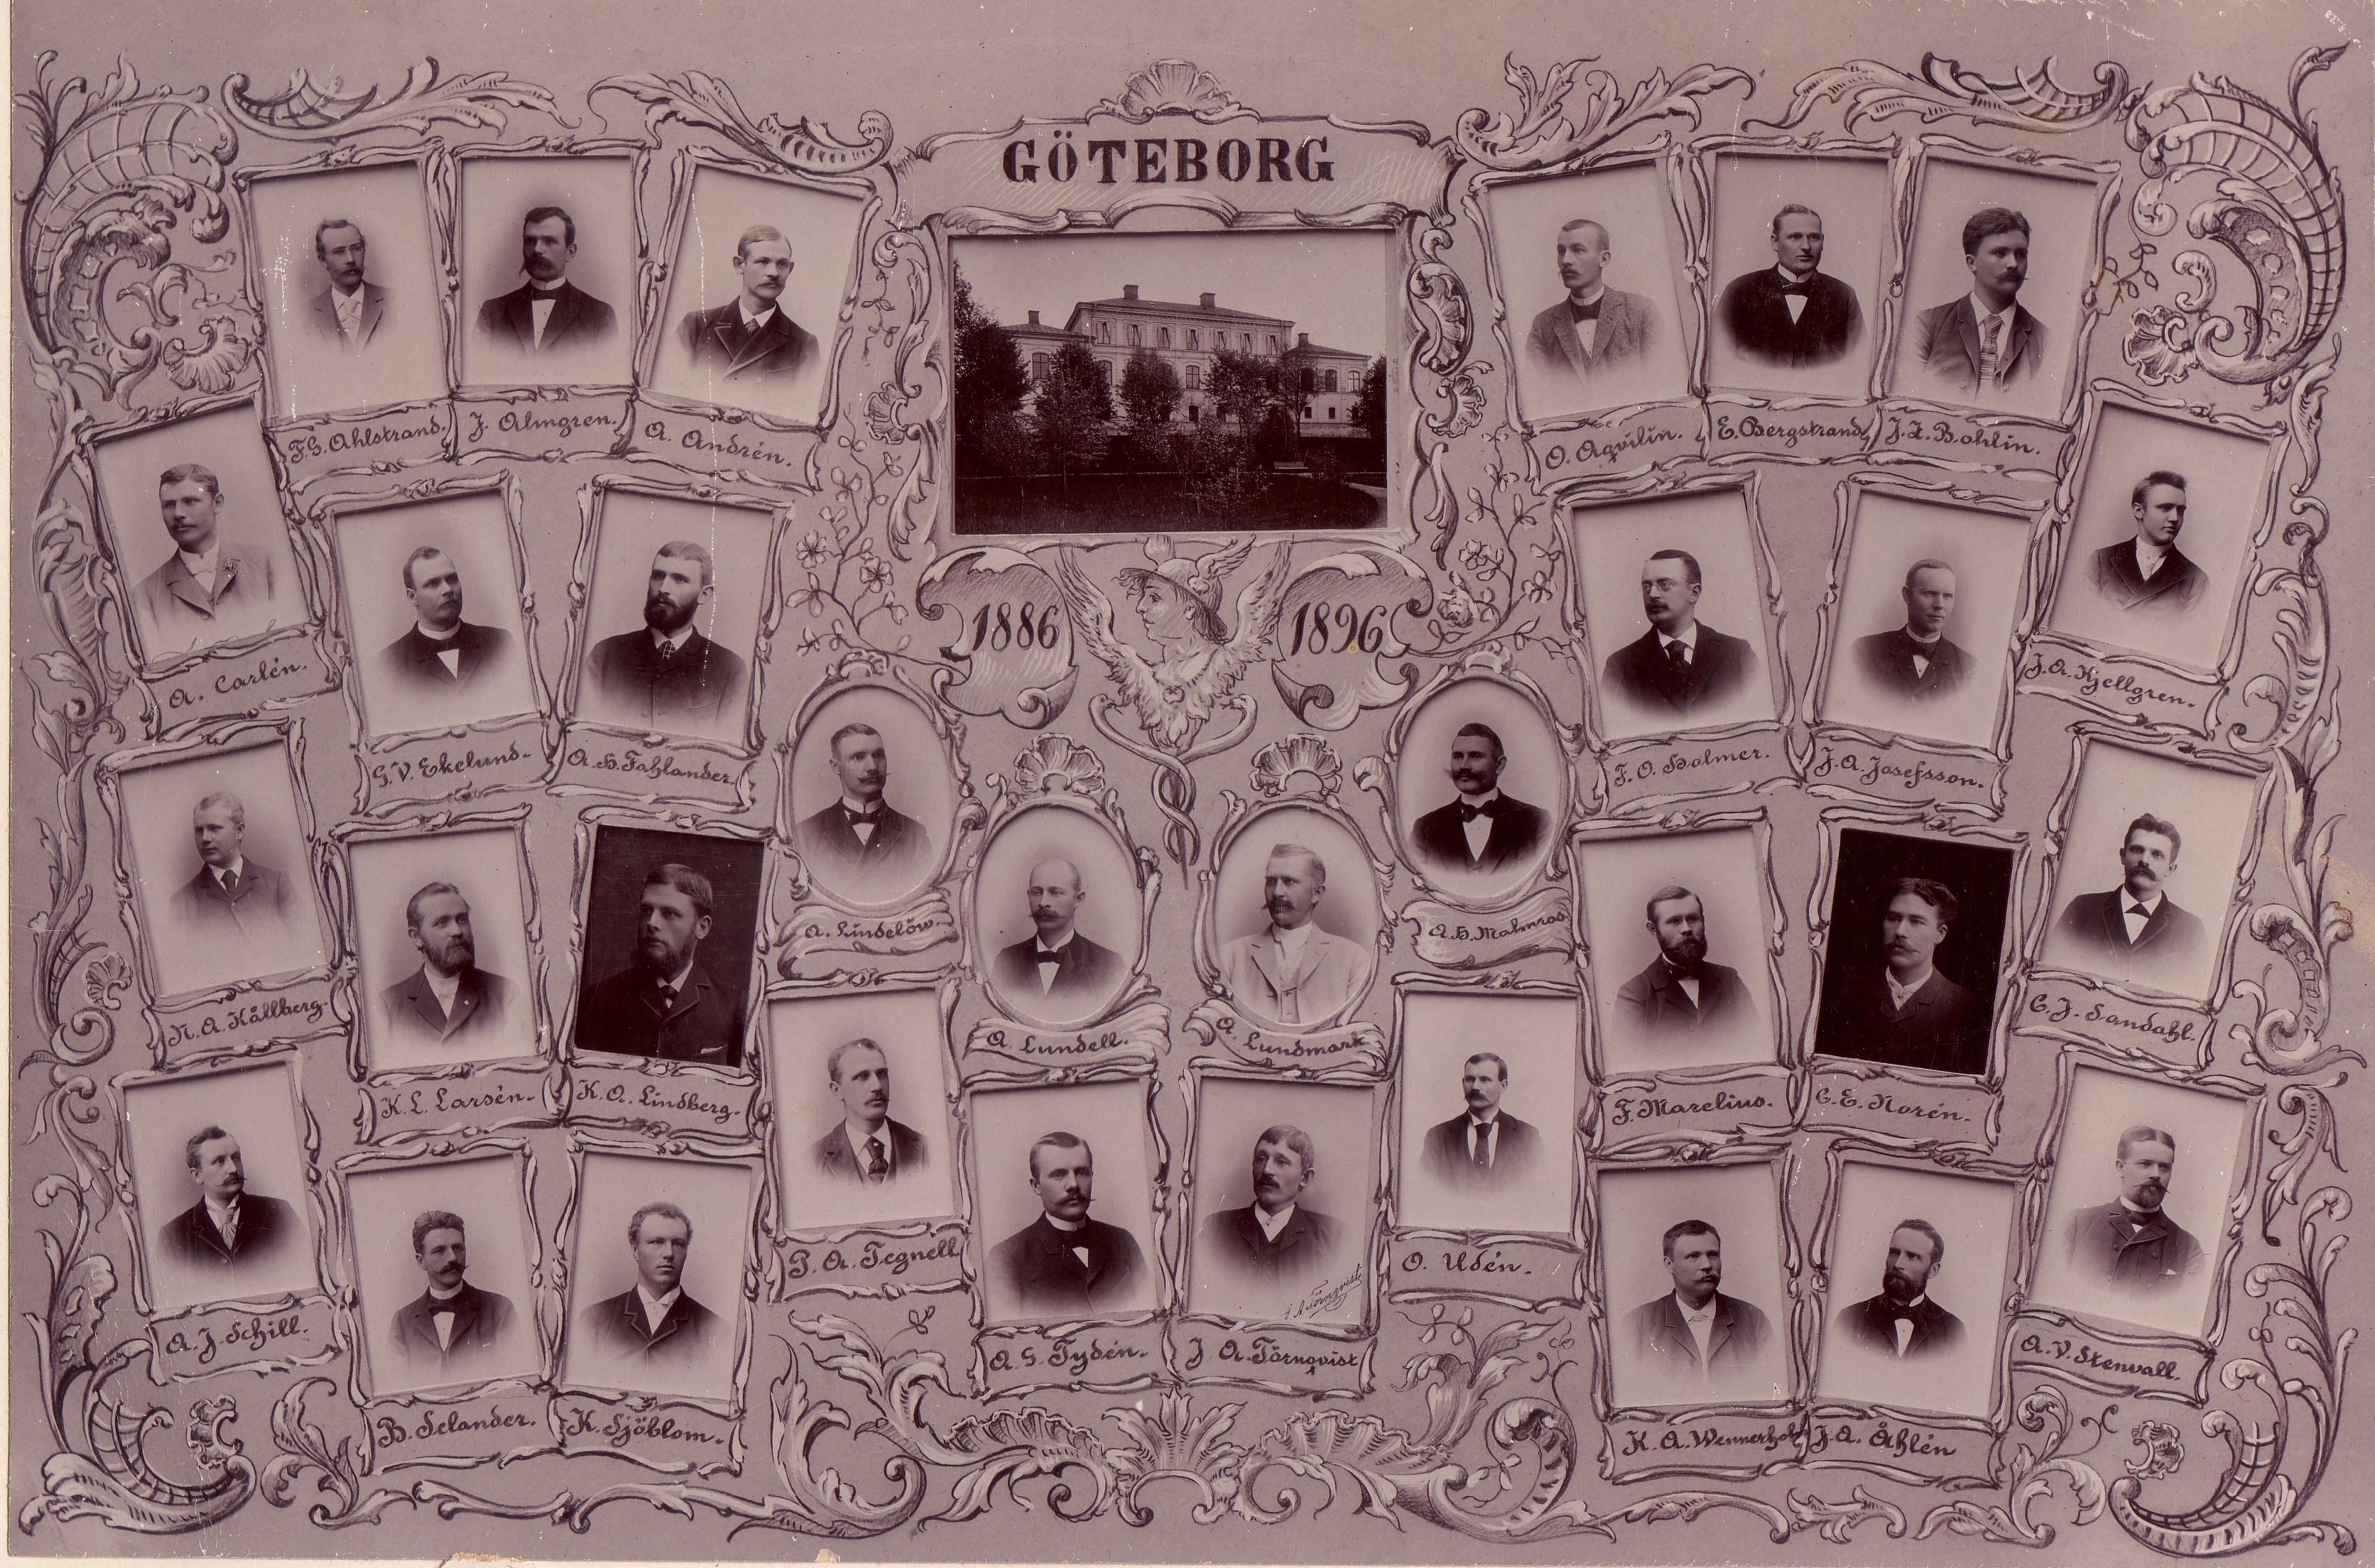 GÖTEBORG
F.G. Ahlstrand.
J. Almgren.
A. Andrén.
O. Aqvilin.
E. Bergstrand.
J.L. Bohlin.
A. Carlén.
G.V. Ekelund.
A.H. Fahlander.
1886
1896
F.O. Holmer.
J.A. Josefsson.
J.A. Kjellgren.
N.A. Källberg.
K.L. Larsén.
K.A. Lindberg.
A. Lindelöw.
A. Lundell.
A. Lundmark.
A.H. Malmros.
F. Marelius.
C.E. Norén.
C.J. Sandahl.
A.J. Schill.
B. Selander.
K. Sjöblom.
P.A. Tegnell
A.G. Tydén.
J A Törnqvist
J A. Törnqvist
O. Udén.
K.A. Wennerholm
J.A. Åhlén
A.V. Stenvall.